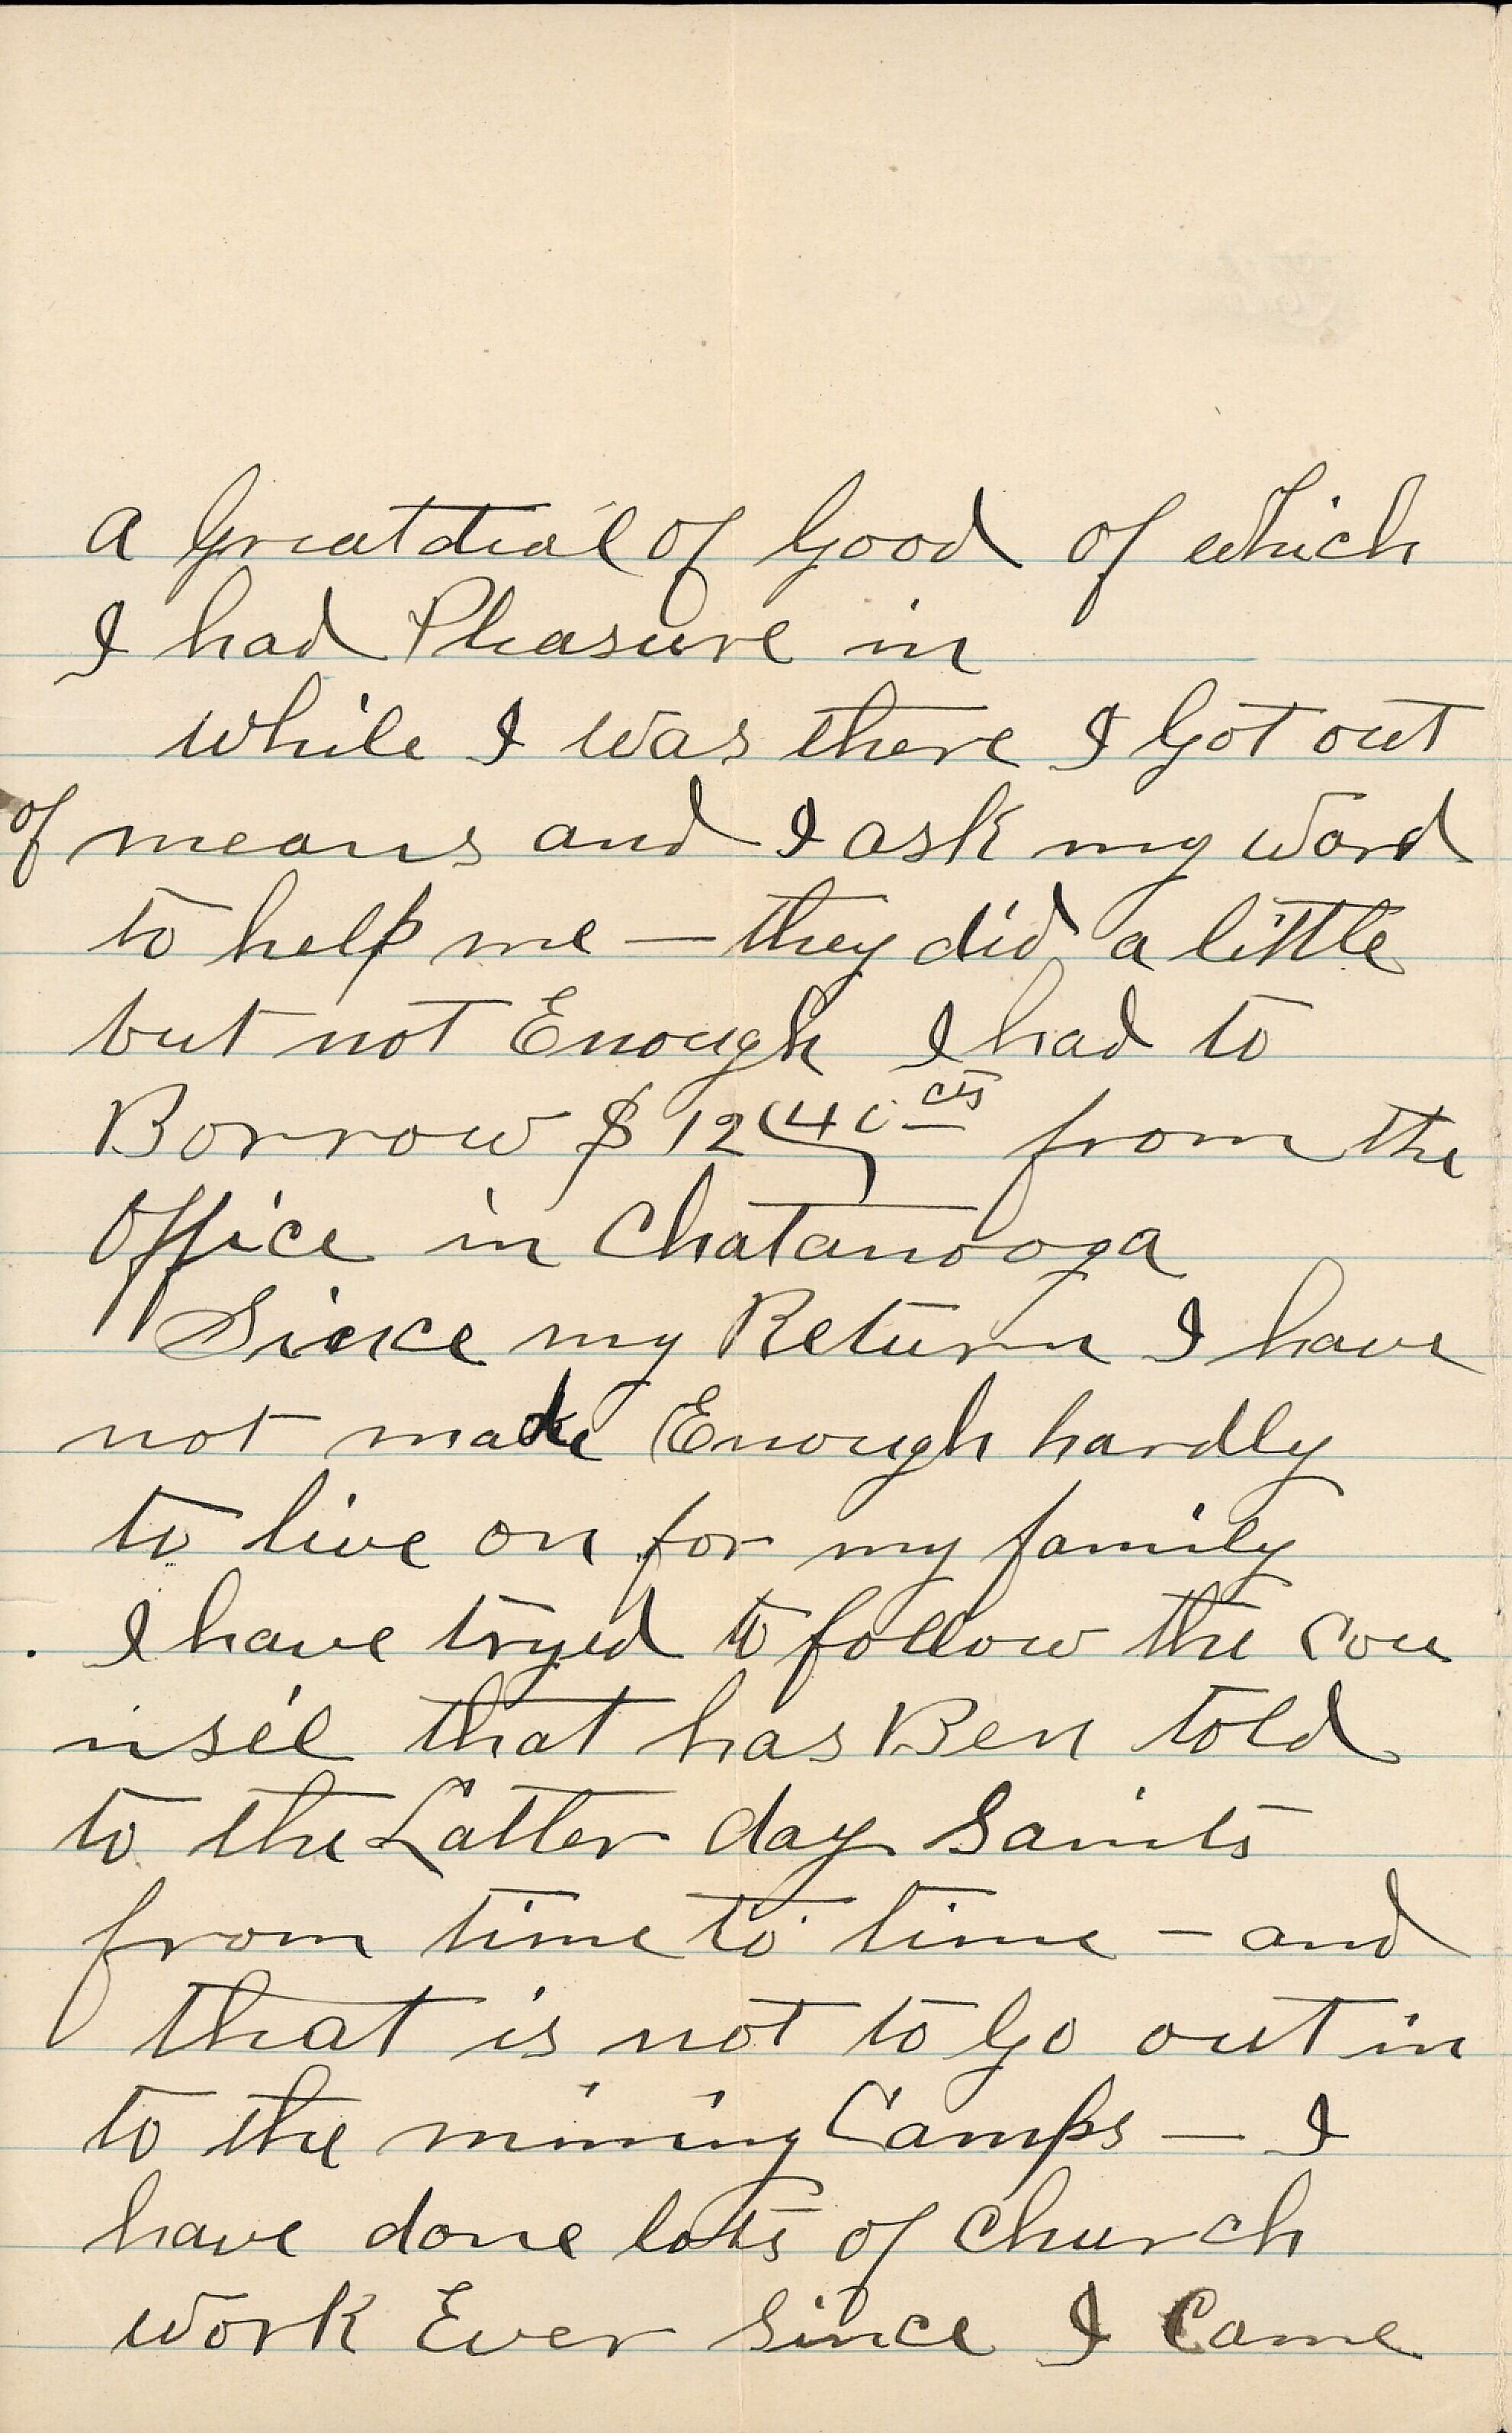 a Great deal of Good of which
I had Pleasure in
while I was there I Got out
of means and I ask my ward
to help me — they did a little
but not Enough I had to
Borrow $ cts from the
Office in Chatanooga
Since my Return I have
not made Enough hardly
to live on for my family
. I have tryed to follow the cou
nsel that has Ben told
to the Latter day Saints
from time to time — and
that is not to Go out in
to the mining Camps — I
have done lots of church
work Ever Since I Came